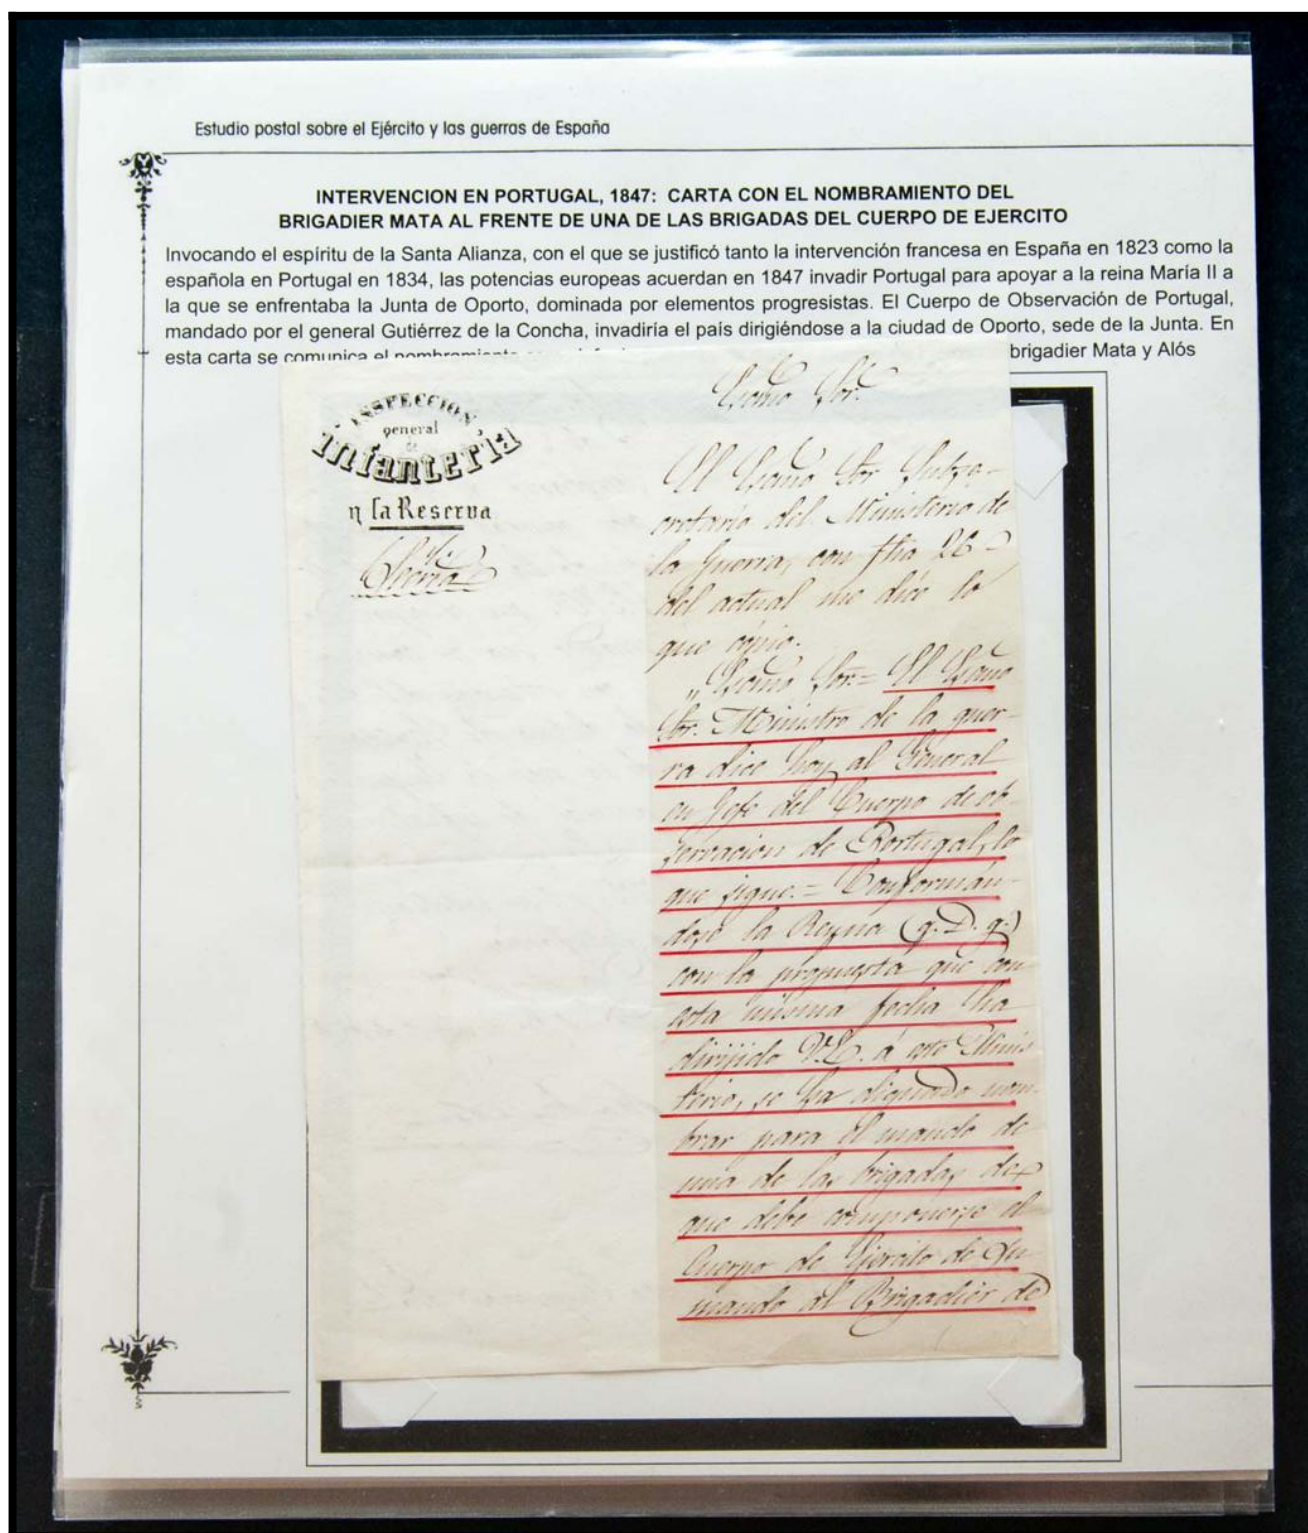 Estudio postal sobre el Ejército y las guerras de España
INTERVENCION EN PORTUGAL, 1847: CARTA CON EL NOMBRAMIENTO DEL
BRIGADIER MATA AL FRENTE DE UNA DE LAS BRIGADAS DEL CUERPO DE EJERCITO
Invocando el espíritu de la Santa Alianza, con el que se justificó tanto la intervención francesa en España en 1823 como la
española en Portugal en 1834, las potencias europeas acuerdan en 1847 invadir Portugal para apoyar a la reina María II a
la que se enfrentaba la Junta de Oporto, dominada por elementos progresistas. El Cuerpo de Observación de Portugal,
mandado por el general Gutiérrez de la Concha, invadiría el país dirigiéndose a la ciudad de Oporto, sede de la Junta. En
esta carta se comunica el nombramiento brigadier Mata y Alós
INSPECCION
general
de
infantería
y la Reserva
Secría
Escmo Sor.
El Escmo Sor Subse-
cretario del Ministerio de
la Guerra, con fha 26
del actual me dice lo
que cópio.
„Escmo Sor.= El Escmo
Sor. Ministro de la guer-
ra dice hoy al General
en Jefe del Cuerpo de ob-
servacion de Portugal, lo
que sigue.= Conformán-
dose la Reyna (q. D. g.)
con la propuesta que con
esta misma fecha ha
dirijido V.E. á este Minis
terio, se ha dignado nom-
brar para el mando de
una de las brigadas de
que debe componerse el
Cuerpo de Ejercito de su
mando al Brigadier de